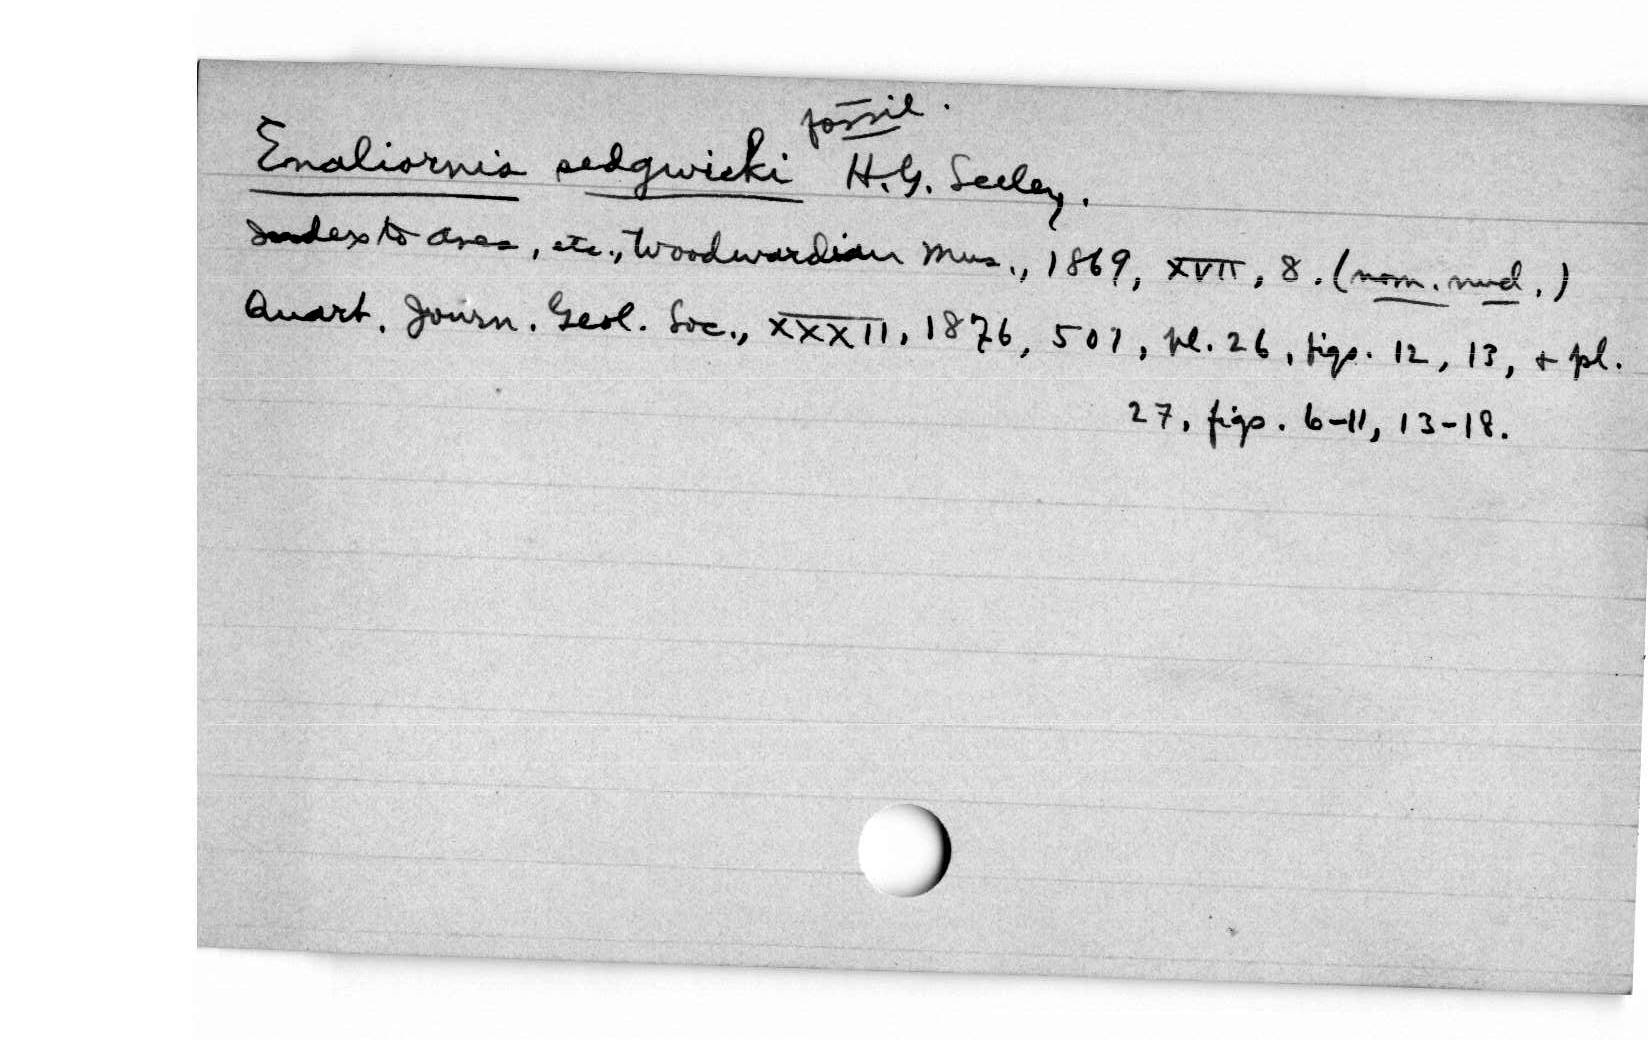 fossil.
Enaliornis sedgwicki H.G. Seeley.
Index to Aves, etc., Woodwardian Mus., 1869, XVII, 8. (nom. nud.)
Quart. Journ. Geol. Soc., XXXII, 1876, 507, pl. 26, figs. 12, 13, + pl.
27, figs. 6-11, 13-18.